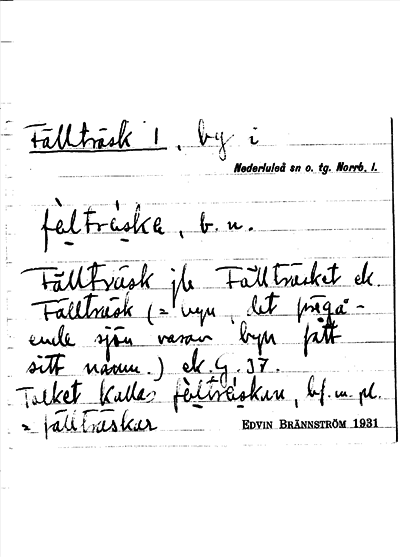 Fällträsk 1, by i
Nederluleå sn o. tg. Norrb. l.
fèltráska, b. n.
Fällträsk jte Fällträsket ek.
Fällträsk (= byn, det
ende sjön varav byn fått
sitt namn.) ek. G. 37.
Folket kallas fèltráskan, bf. m. pl.
= fällträskar
EDVIN BRÄNNSTRÖM 1931